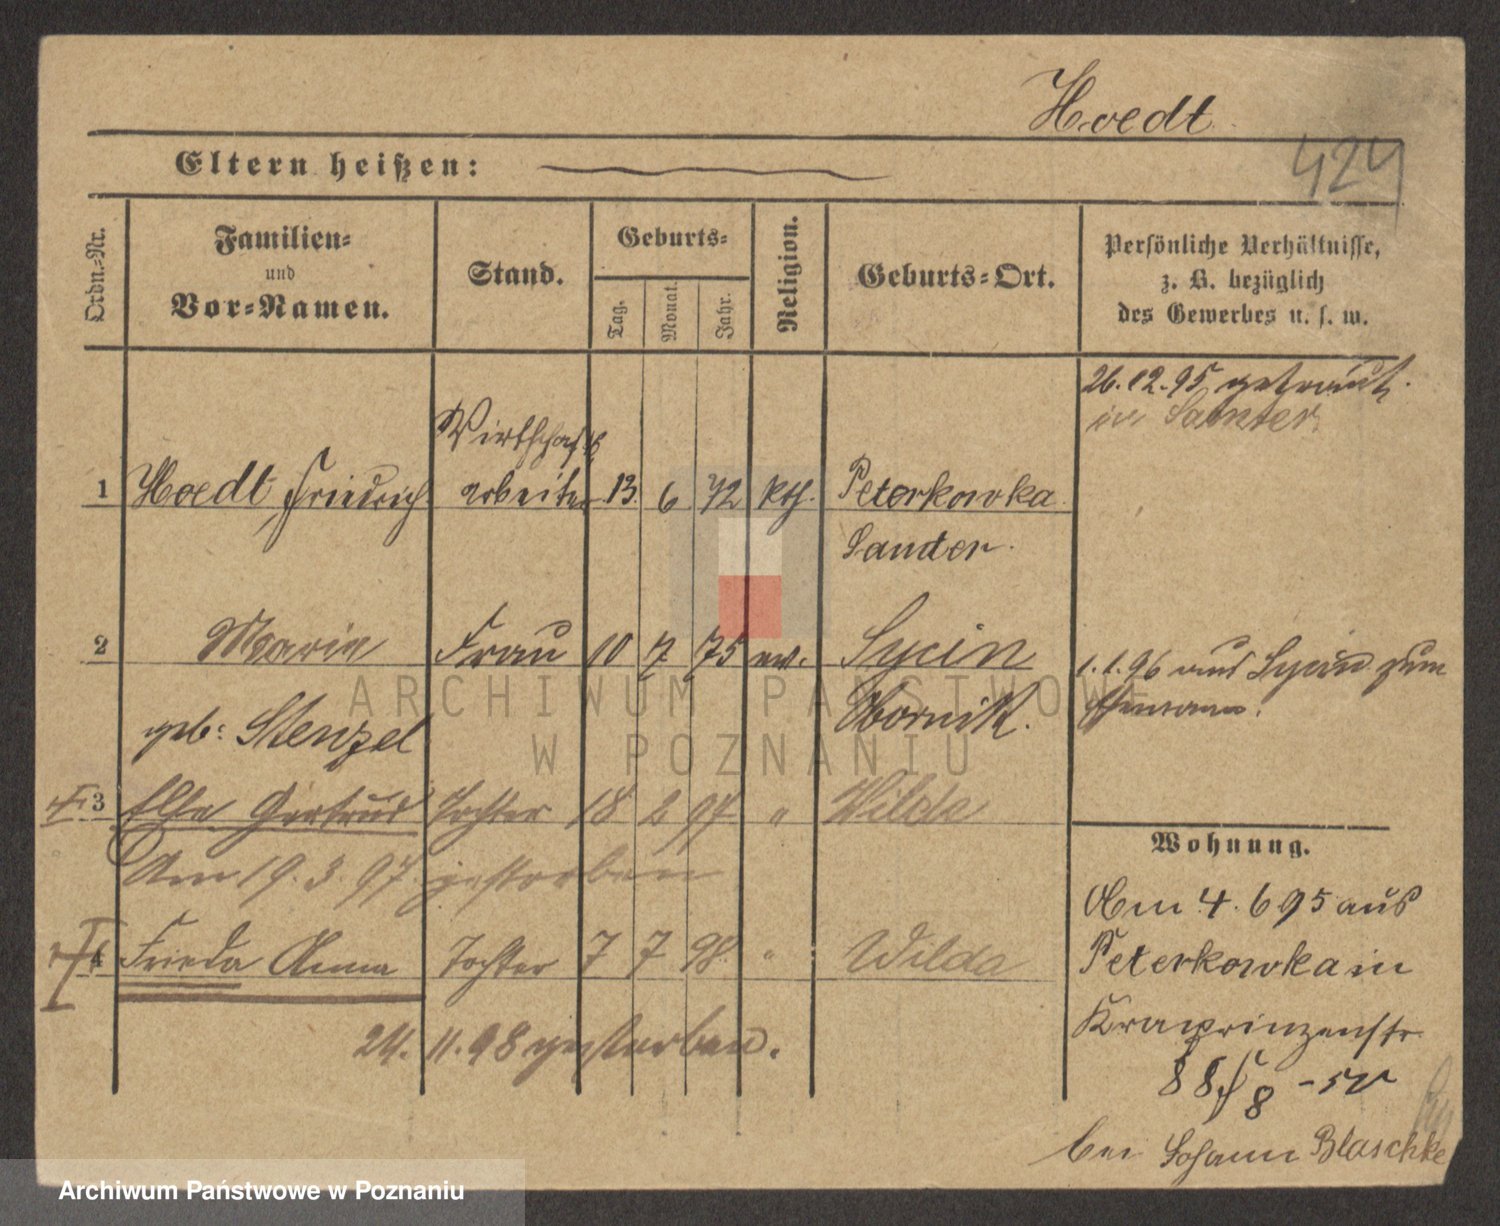 Hoedt
424
Eltern heißen:
Ordn.-Nr.
Familien-
und
Vor-Namen.
Stand.
Geburts-
Tag. Monat. Jahr.
Religion.
Geburts-Ort.
Persönliche Verhältnisse,
z. B. bezüglich
des Gewerbes u. s. w.
26.12.95 getraut
in Samter
Wirthschafts
1 Hoedt Friedrich arbeiter 13. 6 72 kth. Peterkowka
Samter.
2 Maria Frau 10 7 75 ev. Sycin
1.1.96 aus Sycin zum
Ehemann.
geb: Stenzel
Obornik.
3 Else Gertrud Tochter 18 2 97 " Wilda
Am 19.3.97 gestorben
4 Frieda Anna Tochter 7 7 98 " Wilda
24.11.98 gestorben.
Wohnung.
Am 4.6 95 aus
Peterkowka in
Kronprinzenstr.
88
bei Johann Blaschke
ARCHIWUM PAŃSTWOWE
W POZNANIU
Archiwum Państwowe w Poznaniu